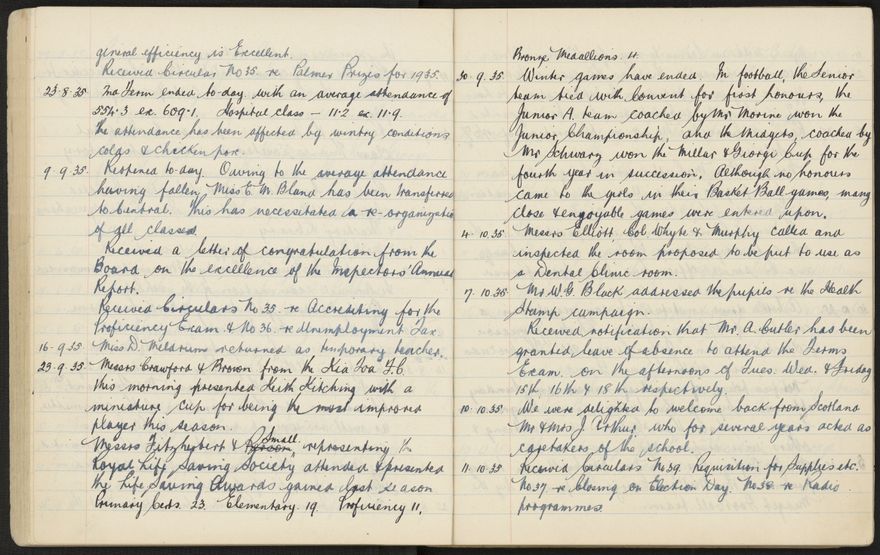 general efficiency is Excellent.
Received Circular No 35. re Palmer Prizes for 1935.
23-8-35 2nd Term ended to-day with an average attendance of
554.3 ex. 609.1. Hospital class - 11.2 ex. 11.9.
The attendance has been affected by wintry conditions
colds & chicken pox.
9-9-35 Reopened to-day. Owing to the average attendance
having fallen, Miss E. M. Bland has been transferred
to Central. This has necessitated a re-organization
of all classes.
Received a letter of congratulation from the
Board on the excellence of the Inspectors' Annual
Report.
Received Circulars No 35. re Accrediting for the
Proficiency Exam. & No 36. re Unemployment Tax.
16-9-35 Miss D. Meldrum returned as temporary teacher.
23.9.35 Messrs Crawford & Brown from the Kia Toa F.C.
this morning presented Keith Kitching with a
miniature cup for being the most improved
player this season.
Messrs Fitzherbert & Small, representing the
Royal Life Saving Society attended & presented
the Life Saving Awards gained last season
Primary Certs. 23. Elementary. 19. Proficiency 11.
Bronze Medallions. 4.
30.9.35 Winter games have ended. In football, the Senior
team tied with Convent for first honours, the
Junior A. team coached by Mr Morine won the
Junior Championship, and the Midgets, coached by
Mr Schwarz won the Millar & Giorgi Cup for the
fourth year in succession. Although no honours
came to the girls in their Basket Ball games, many
close & enjoyable games were entered upon.
4.10.35 Messrs Elliott, Col. Whyte & Murphy called and
inspected the room proposed to be put to use as
a Dental Clinic room.
7.10.35 Mr W. G. Black addressed the pupils re the Health
Stamp campaign.
Received notification that Mr. A. Cutler has been
granted leave of absence to attend the Terms
Exam. on the afternoons of Tues. Wed. & Friday
15th, 16th & 18th respectively.
10.10.35 We were delighted to welcome back from Scotland
Mr & Mrs J. Arthur who for several years acted as
caretakers of the school.
11.10.35 Received Circulars No 39. Requisition for Supplies etc.
No 37 re Closing on Election Day. No 38 re Radio
programmes